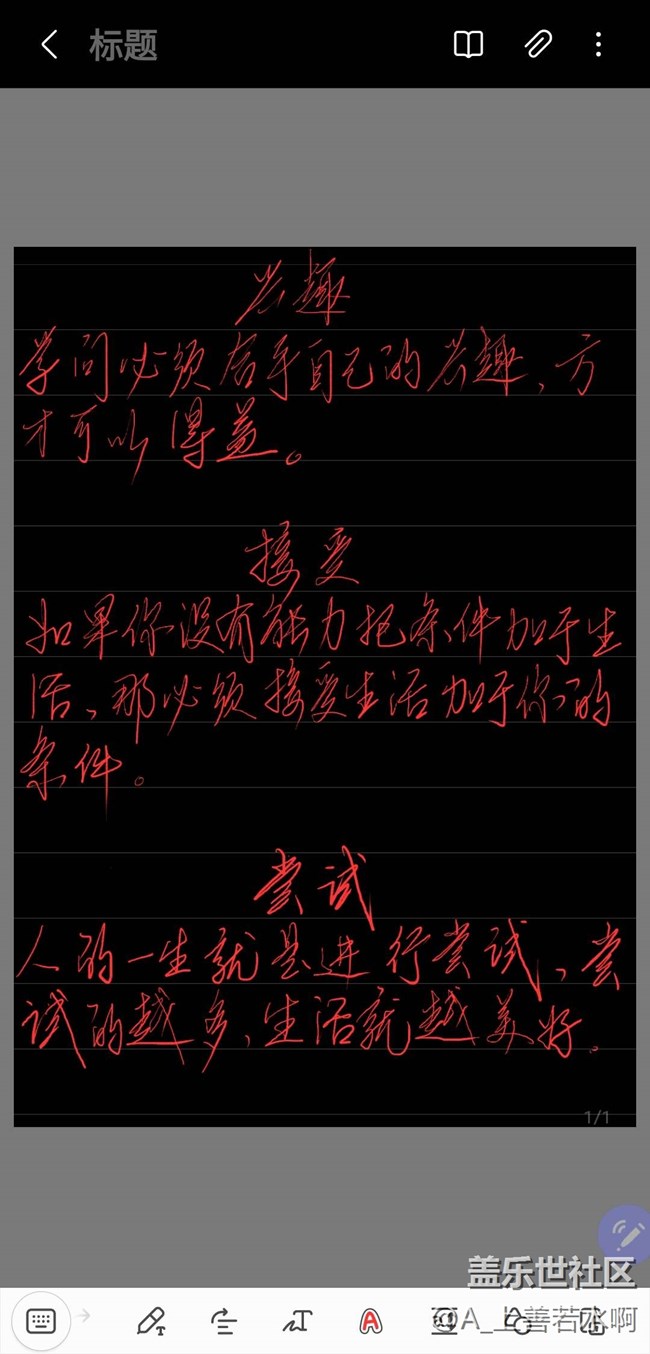 标题
兴趣
学问必须合乎自己的兴趣、方
才可以得益。
接受
如果你没有能力把条件加于生
活、那必须接受生活加于你的
条件。
尝试
人的一生就是进行尝试、尝
试的越多、生活就越美好。
1/1
盖乐世社区
@A_上善若水啊